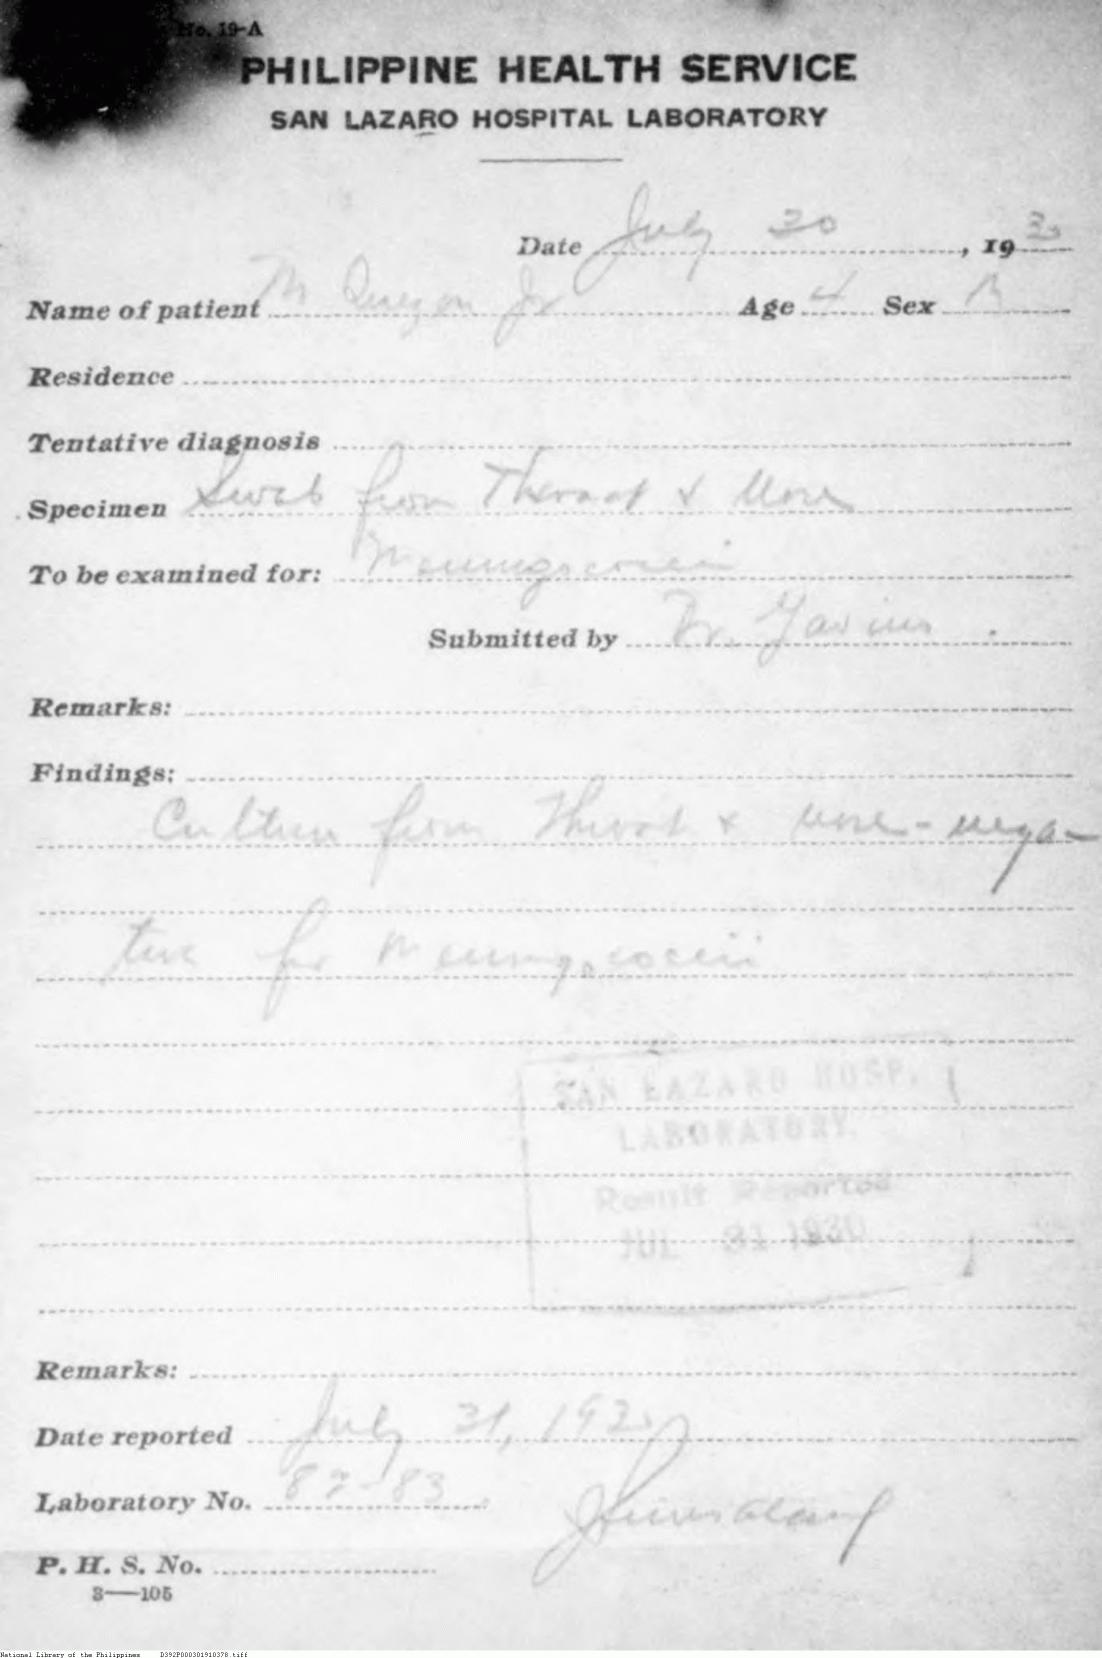 No. 19-A
PHILIPPINE HEALTH SERVICE
SAN LAZARO HOSPITAL LABORATORY
Date July 30, 1930
Name of patient M Quezon Jr Age 4 Sex
Residence
Tentative diagnosis
Specimen Swab from Throat & Nose
To be examined for: Meningococci
Submitted by Dr.
Remarks:
Findings:
Culture from Throat & nose - nega-
tive for Meningococci
SAN LAZARO HOSP.
LABORATORY.
Result Reported
JUL 31 1930
Remarks:
Date reported July 31, 1930
Laboratory No. 82-83
P. H. S. No.
3—105
National Library of the Philippines D392P000301910378.tiff